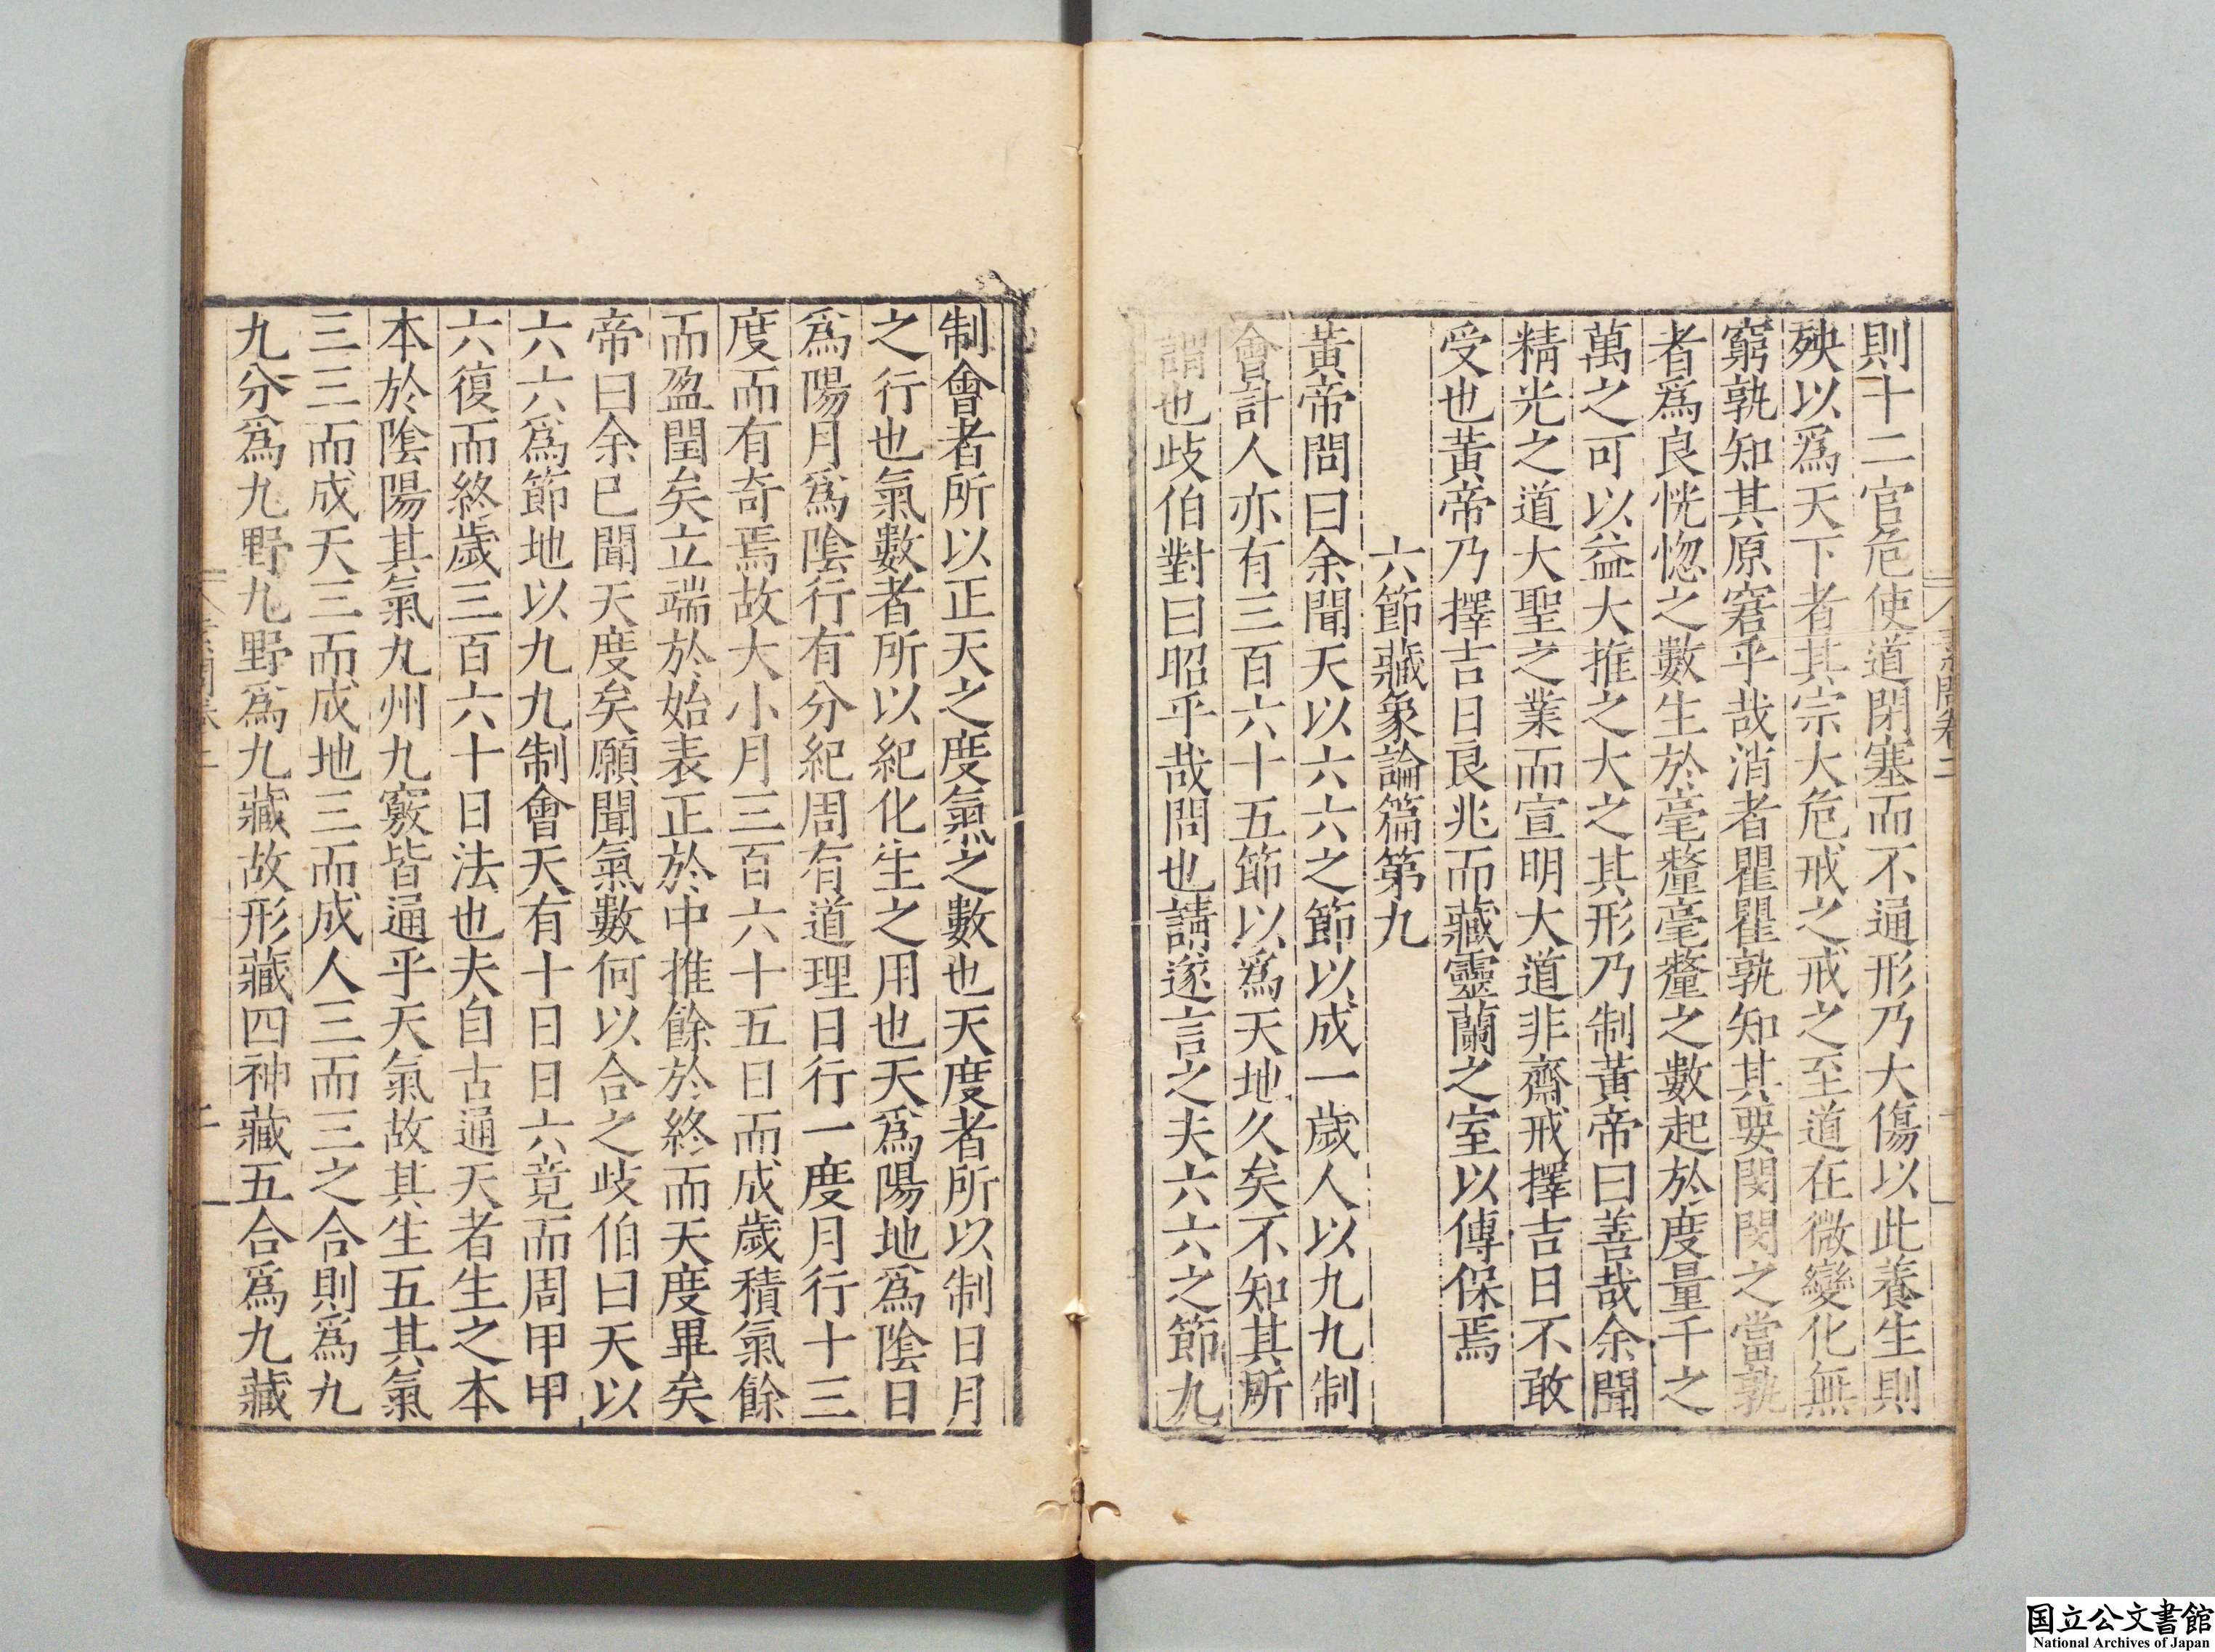 則十二官危使道閉塞而不通形乃大傷以此養生則
殃以爲天下者其宗大危戒之戒之至道在微變化無
窮孰知其原窘乎哉消者瞿瞿孰知其要閔閔之當孰
者爲良恍惚之數生於毫釐毫釐之數起於度量千之
萬之可以益大推之大之其形乃制黃帝曰善哉余聞
精光之道大聖之業而宣明大道非齋戒擇吉日不敢
受也黃帝乃擇吉日良兆而藏靈蘭之室以傳保焉
六節藏象論篇第九
黃帝問曰余聞天以六六之節以成一歲人以九九制
會計人亦有三百六十五節以爲天地久矣不知其所
謂也歧伯對曰昭乎哉問也請遂言之夫六六之節九
制會者所以正天之度氣之數也天度者所以制日月
之行也氣數者所以紀化生之用也天爲陽地爲陰日
爲陽月爲陰行有分紀周有道理日行一度月行十三
度而有奇焉故大小月三百六十五日而成歲積氣餘
而盈閏矣立端於始表正於中推餘於終而天度畢矣
帝曰余已聞天度矣願聞氣數何以合之歧伯曰天以
六六爲節地以九九制會天有十日日六竟而周甲甲
六復而終歲三百六十日法也夫自古通天者生之本
本於陰陽其氣九州九竅皆通乎天氣故其生五其氣
三三而成天三而成地三而成人三而三之合則爲九
九分爲九野九野爲九藏故形藏四神藏五合爲九藏
国立公文書館
National Archives of Japan